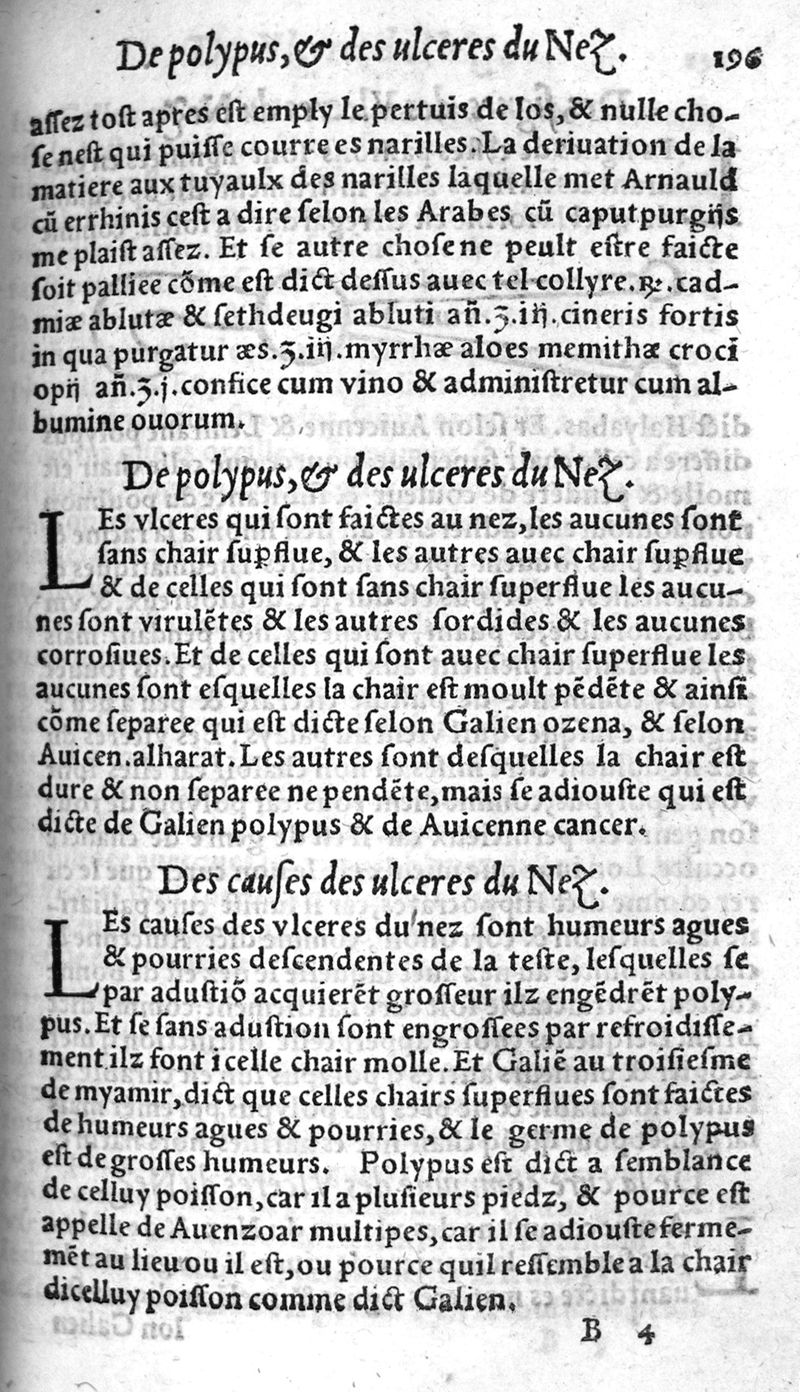 De polypus, & des ulceres du Nez. 196
assez tost apres est emply le pertuis de los, & nulle cho-
se nest qui puisse courre es narilles. La deriuation de la
matiere aux tuyaulx des narilles laquelle met Arnauld
cũ errhinis cest a dire selon les Arabes cũ caputpurgijs
me plaist assez. Et se autre chose ne peult estre faicte
soit palliee cõme est dict dessus auec tel collyre. ℞. cad-
miæ ablutæ & sethdeugi abluti añ. ʒ. iij. cineris fortis
in qua purgatur æs. ʒ. iij. myrrhæ aloes memithæ croci
opij añ. ʒ. j. confice cum vino & administretur cum al-
bumine ouorum.
De polypus, & des ulceres du Nez.
LEs vlceres qui sont faictes au nez, les aucunes sont
sans chair suꝑflue, & les autres auec chair suꝑflue
& de celles qui sont sans chair superflue les aucu-
nes sont virulẽtes & les autres sordides & les aucunes
corrosiues. Et de celles qui sont auec chair superflue les
aucunes sont esquelles la chair est moult pẽdẽte & ainsi
cõme separee qui est dicte selon Galien ozena, & selon
Auicen. alharat. Les autres sont desquelles la chair est
dure & non separee ne pendẽte, mais se adiouste qui est
dicte de Galien polypus & de Auicenne cancer.
Des causes des ulceres du Nez.
LEs causes des vlceres du nez sont humeurs agues
& pourries descendentes de la teste, lesquelles se
par adustiõ acquierẽt grosseur ilz engẽdrẽt poly-
pus. Et se sans adustion sont engrossees par refroidisse-
ment ilz font icelle chair molle. Et Galiẽ au troisiesme
de myamir, dict que celles chairs superflues sont faictes
de humeurs agues & pourries, & le germe de polypus
est de grosses humeurs. Polypus est dict a semblance
de celluy poisson, car il a plusieurs piedz, & pource est
appelle de Auenzoar multipes, car il se adiouste ferme-
mẽt au lieu ou il est, ou pource quil ressemble a la chair
dicelluy poisson comme dict Galien.
B 4